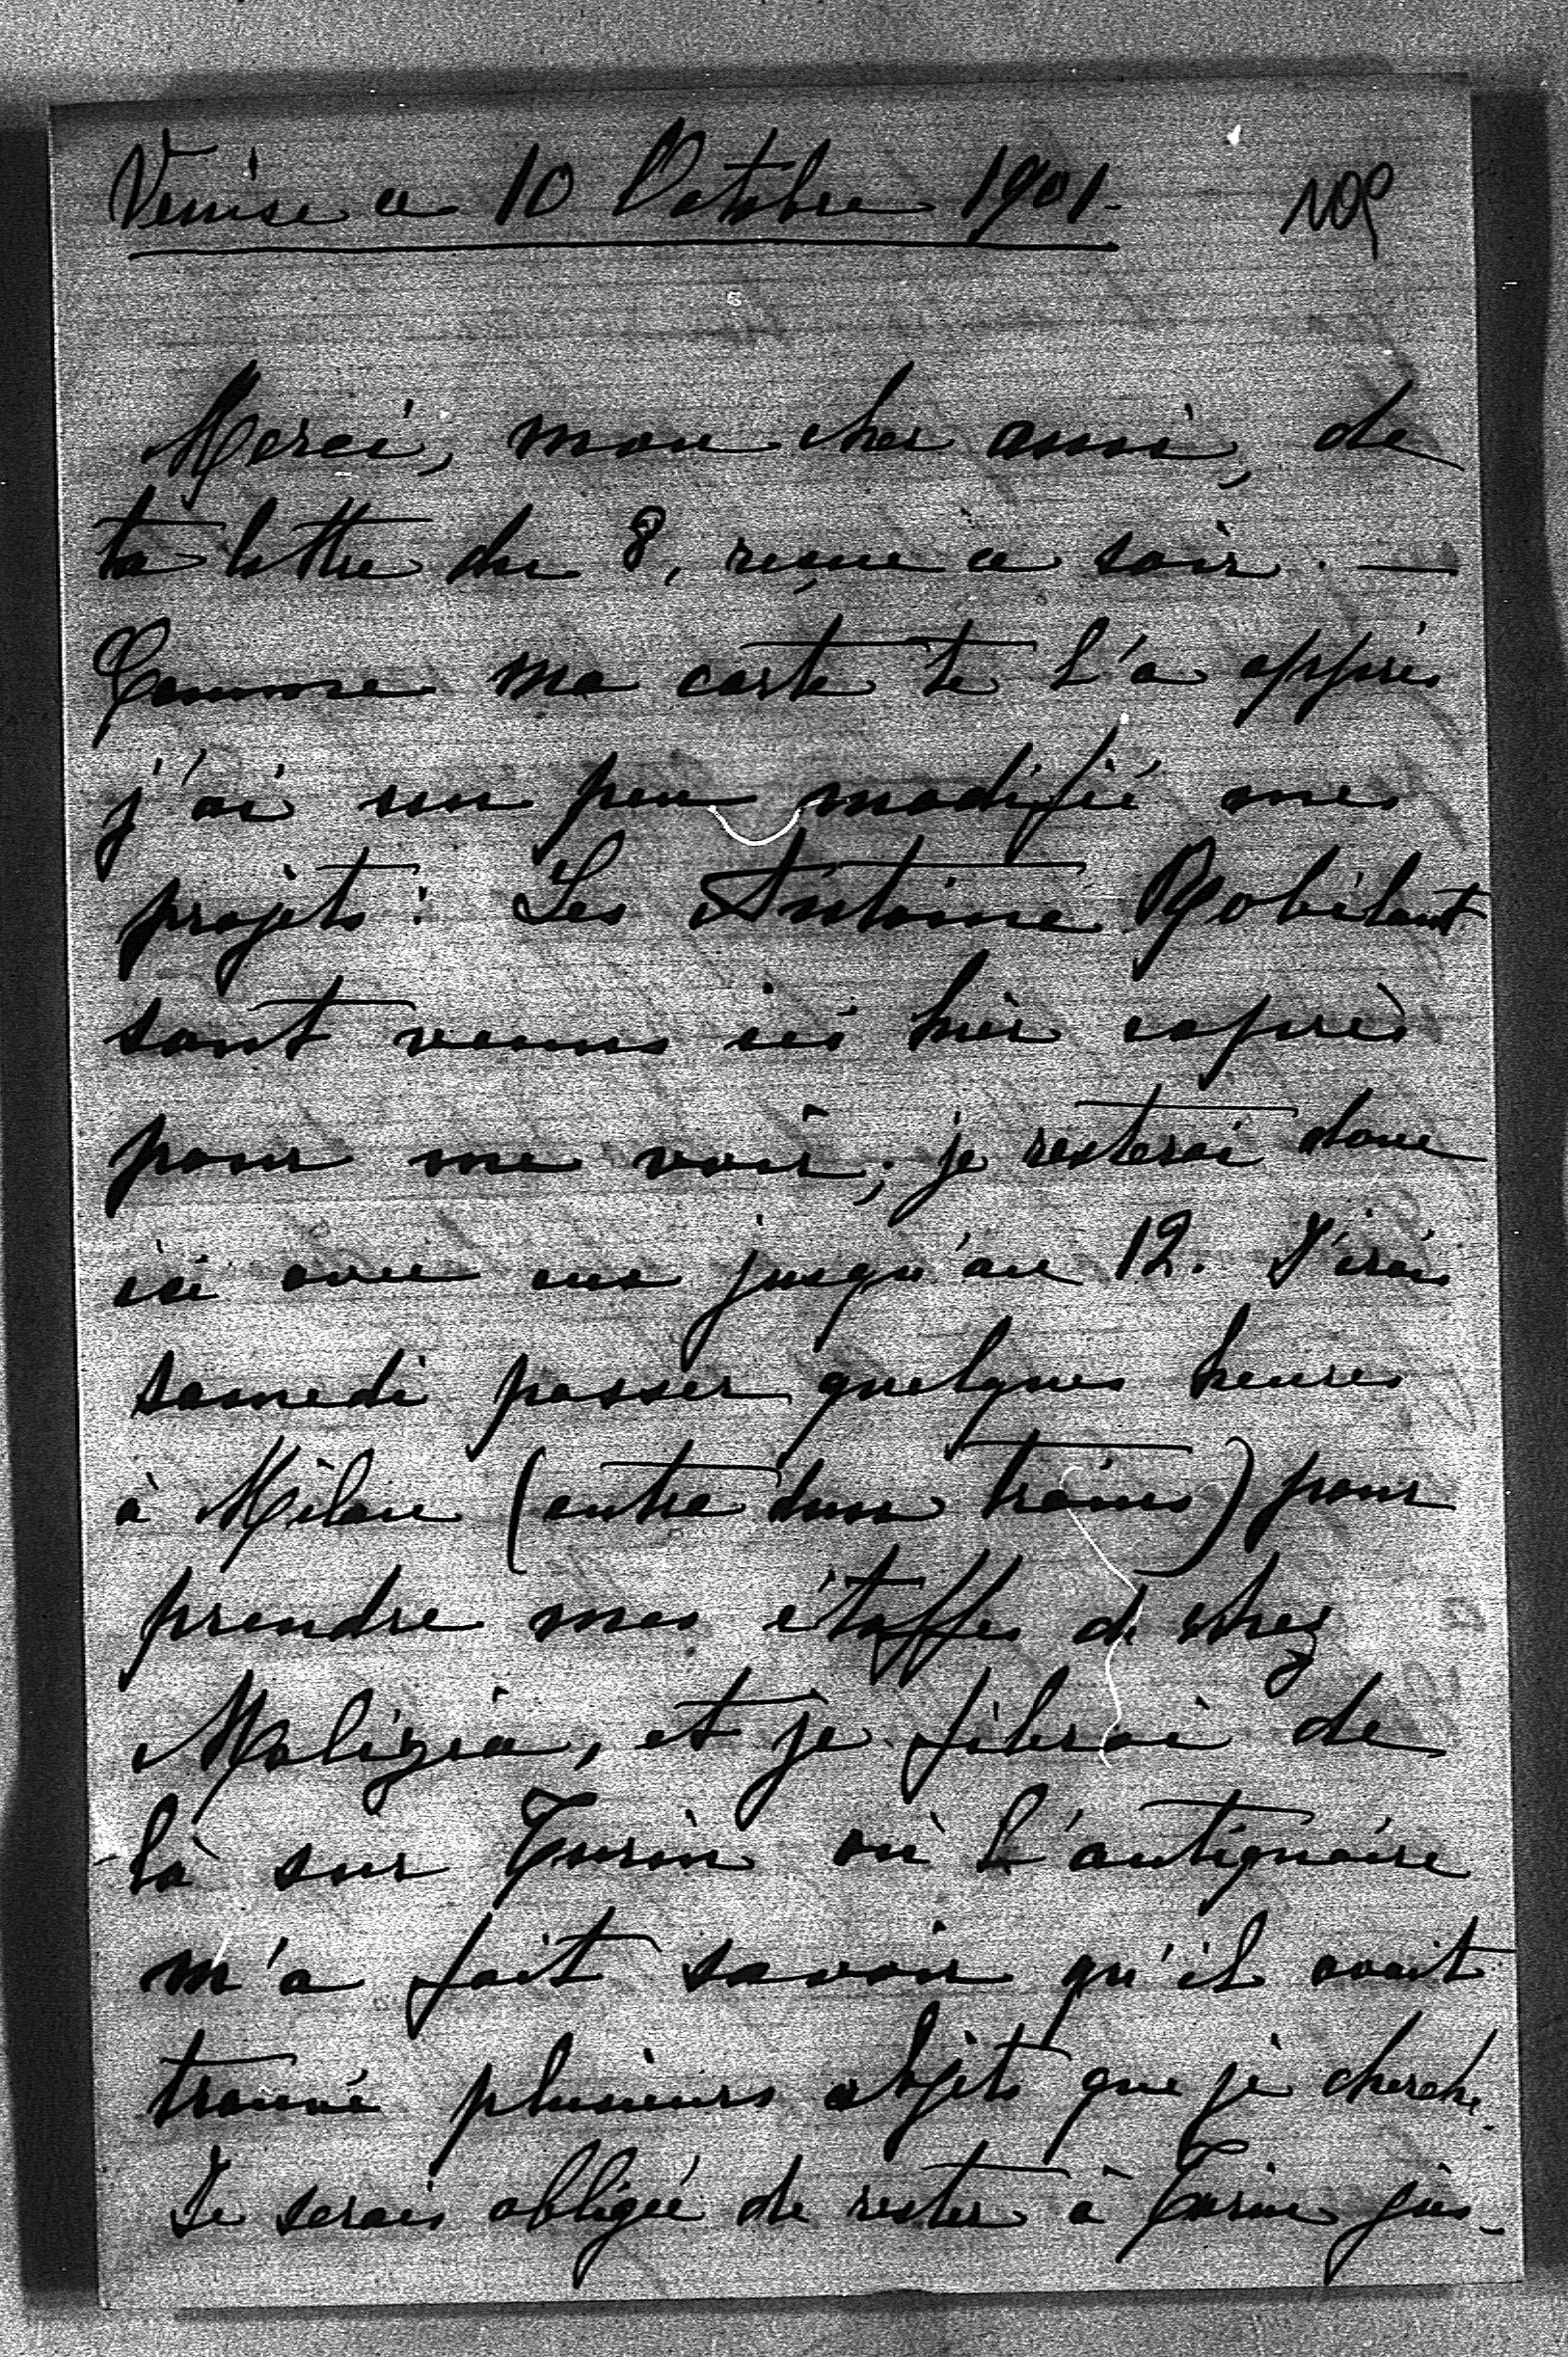 Venise ce 10 Octobre 1901.
109
Merci, mon cher ami, de
ta lettre du 8, reçue ce soir. —
Comme ma carte te l'a appris
j'ai un peu modifié mes
projets: Les Antoine Robilant
sont venus ici hier exprès
pour me voir; je resterai donc
ici avec eux jusqu'au 12. J'irai
samedi passer quelques heures
à Milan (entre deux trains) pour
prendre mes étoffes de chez
et je filerai de
là sur Turin où l'antiquaire
m'a fait savoir qu'il avait
trouvé plusieurs objets que je cherche.
Je serais obligée de rester à Turin jus-